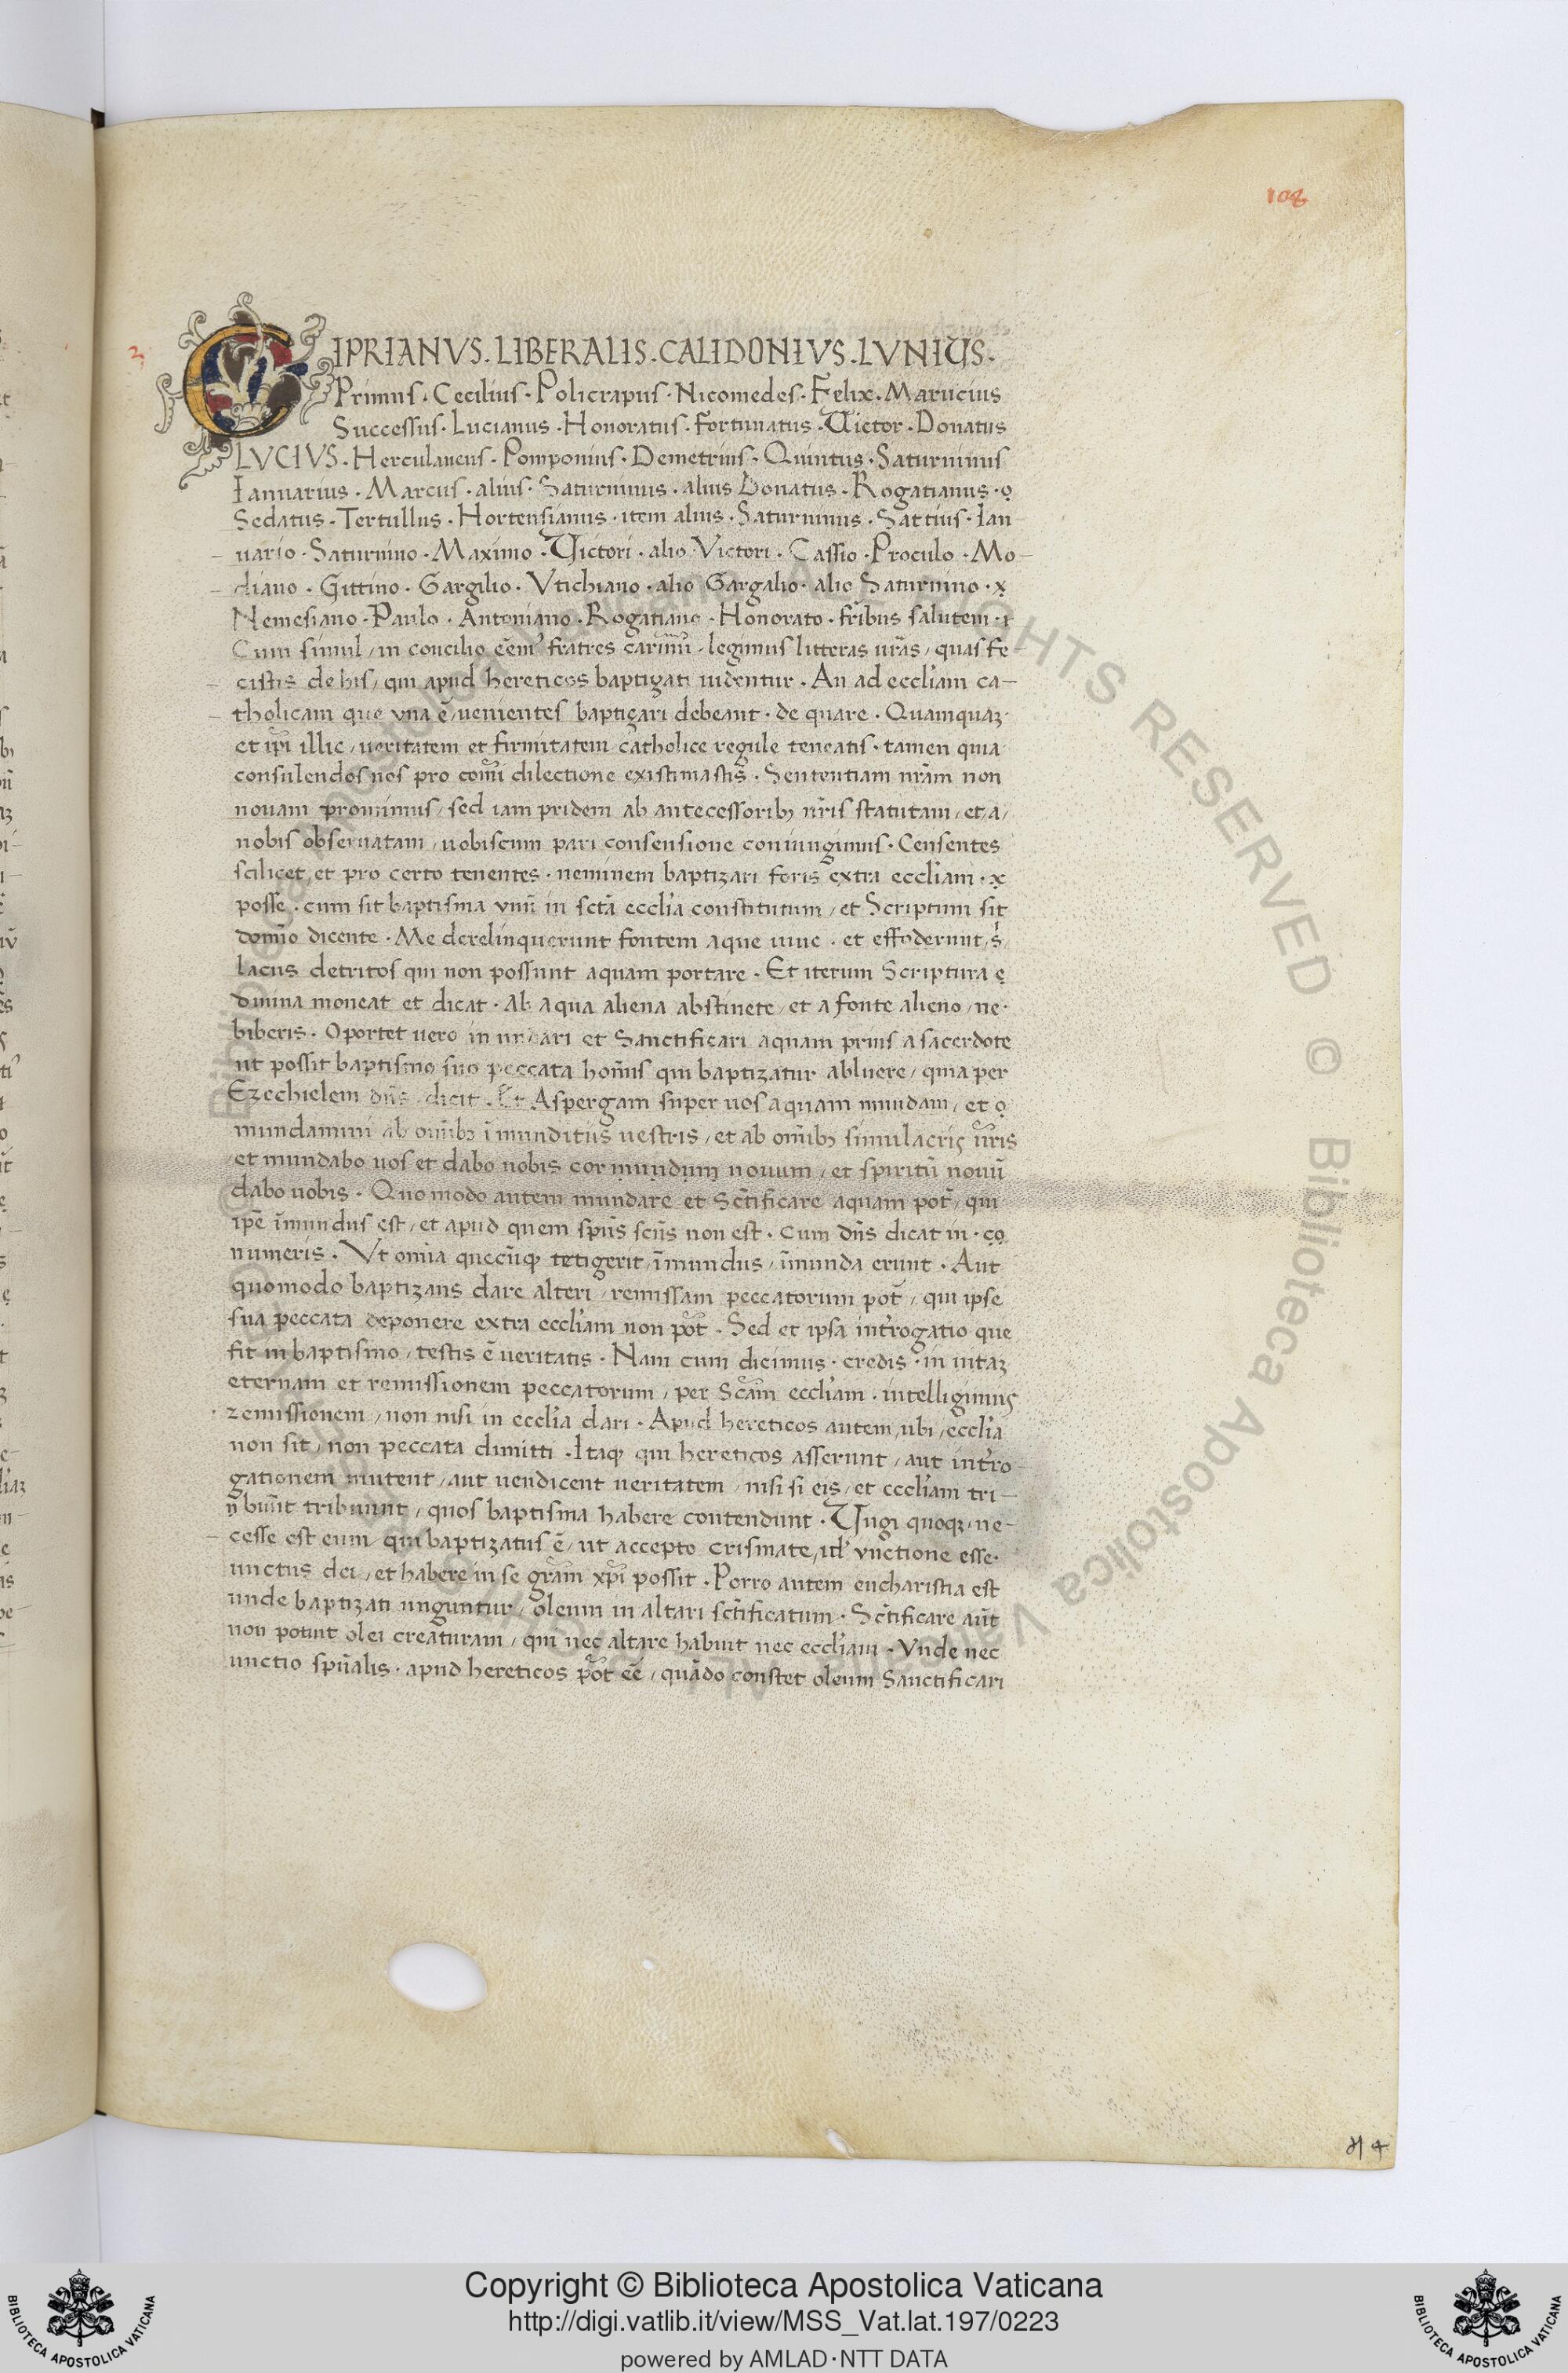 108
2
CIPRIANVS. LIBERALIS. CALIDONIVS. LVNIUS.
Primus. Cecilius. Policrapus. Nicomedes. Felix. Marucius
Successus. Lucianus. Honoratus. Fortunatus. Victor. Donatus
LVCIVS. Herculaneus. Pomponius. Demetrius. Quintus. Saturninus
Ianuarius. Marcus. alius. Saturninus. alius Donatus. Rogatianus. o
Sedatus. Tertullus. Hortensianus. item alius. Saturninus. Sattius. Ian
uario. Saturnino. Maximo. Victori. alio Victori. Cassio. Proculo. Mo-
diano. Gittino. Gargilio. Vtichiano. alio Gargalio. alio Saturnino. x
Nemesiano. Paulo. Antoniano. Rogatiano. Honorato. fr̃ibus salutem. i
Cum simul / in concilio eẽm' fratres carim̃i. legimus litteras ur̃as / quas fe
cistis de his / qui apud hereticos baptigati uidentur. An ad eccl̃iam ca-
tholicam que vna ẽ / uenientes baptigari debeant. de quare. Quamquaʒ
et ip̃i illic / ueritatem et firmitatem catholice regule teneatis. tamen quia
consulendos nos pro com̃i dilectione existimastis. Sententiam nr̃am non
nouam promimus / sed iam pridem ab antecessoribʒ nr̃is statutam / et / a /
nobis obseruatam / uobiscum pari consensione coniungimus. Censentes
scilicet et pro certo tenentes. neminem baptizari foris extra eccl̃iam. x
posse. cum sit baptisma vnũ in sctã eccl̃ia constitutum / et Scriptum sit
domĩo dicente. Me derelinquerunt fontem aque uiue. et effoderunt s̃
lacus detritos qui non possunt aquam portare. Et iterum Scriptura e
diuina moneat et dicat. Ab aqua aliena abstinete / et a fonte alieno / ne.
biberis. Oportet uero in undari et Sanctificari aquam prius a sacerdote
ut possit baptismo suo peccata hom̃is qui baptizatur abluere / quia per
Ezechielem dñs / dicit. Et Aspergam super uos aquam mundam / et o
mundamini ab om̃ibʒ ĩmunditiis uestris / et ab om̃ibʒ simulacris ur̃is
et mundabo uos et dabo uobis cor mundum nouum / et spiritũ nouũ
dabo uobis. Quo modo autem mundare et Sctĩficare aquam pot̃ / qui
ip̃e ĩmundus est / et apud quem sp̃us scũs non est. Cum dñs dicat in. co
numeris. Vt om̃ia quecũqʒ tetigerit / ĩmundus / ĩmunda erunt. Aut
quomodo baptizans dare alteri / remissam peccatorum pot̃ / qui ipse
sua peccata deponere extra eccl̃iam non pot̃. Sed et ipsa int̃rogatio que
fit in baptismo / testis ẽ ueritatis. Nam cum dicimus. credis. in uitaʒ
eternam et remissionem peccatorum / per Scam̃ eccl̃iam. intelligimus
remissionem / non nisi in eccl̃ia dari. Apud hereticos autem / ubi / eccl̃ia
non sit / non peccata dimitti. Itaqʒ qui hereticos asserunt / aut int̃ro-
gationem mutent / aut uendicent ueritatem / nisi si eis / et eccl̃iam tri-
bunt tribuunt / quos baptisma habere contendunt. Vngi quoqʒ ne-
cesse est eum / qui baptizatus ẽ / ut accepto crismate / id' vnctione esse.
unctus dei / et habere in se gram̃ xp̃i possit. Porro autem eucharistia est
unde baptizati unguntur / oleum in altari sctĩficatum. Sctĩficare aũt
non potuit olei creaturam / qui nec altare habuit nec eccl̃iam. Vnde nec
unctio spũalis. apud hereticos pot̃ eẽ / quãdo constet oleum Sanctificari
© Biblioteca Apostolica Vaticana
ALL RIGHTS RESERVED
Copyright © Biblioteca Apostolica Vaticana
http://digi.vatlib.it/view/MSS_Vat.lat.197/0223
powered by AMLAD·NTT DATA
BIBLIOTECA APOSTOLICA VATICANA
BIBLIOTECA APOSTOLICA VATICANA